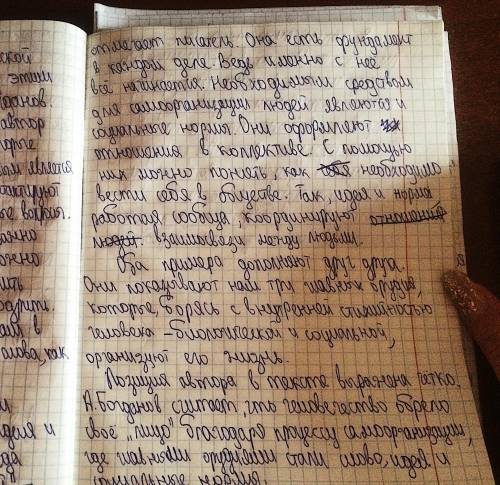 отмечает писатель. Она есть фундамент
в каждом деле. Ведь именно с неё
всё начинается. Необходимым средством
для самоорганизации людей являются и
социальные нормы. Они оформляют
отношения в коллективе. С помощью
них можно понять, как необходимо
вести себя в обществе. Так, идея и норма
работая сообща, координируют отношения
людей. взаимосвязи между людьми.
Оба примера дополняют друг друга.
Они показывают нам три главных орудия,
которые, борясь с внутренней стихийностью
человека – биологической и социальной,
организуют его жизнь.
Позиция автора в тексте выражена чётко.
А. Богданов считает, что человечество обрело
своё "лицо" благодаря процессу самоорганизации,
где главными орудиями стали слово, идея и
социальные нормы.
ской
этими
данов.
автор
является
вопросы.
слова, как
идея и